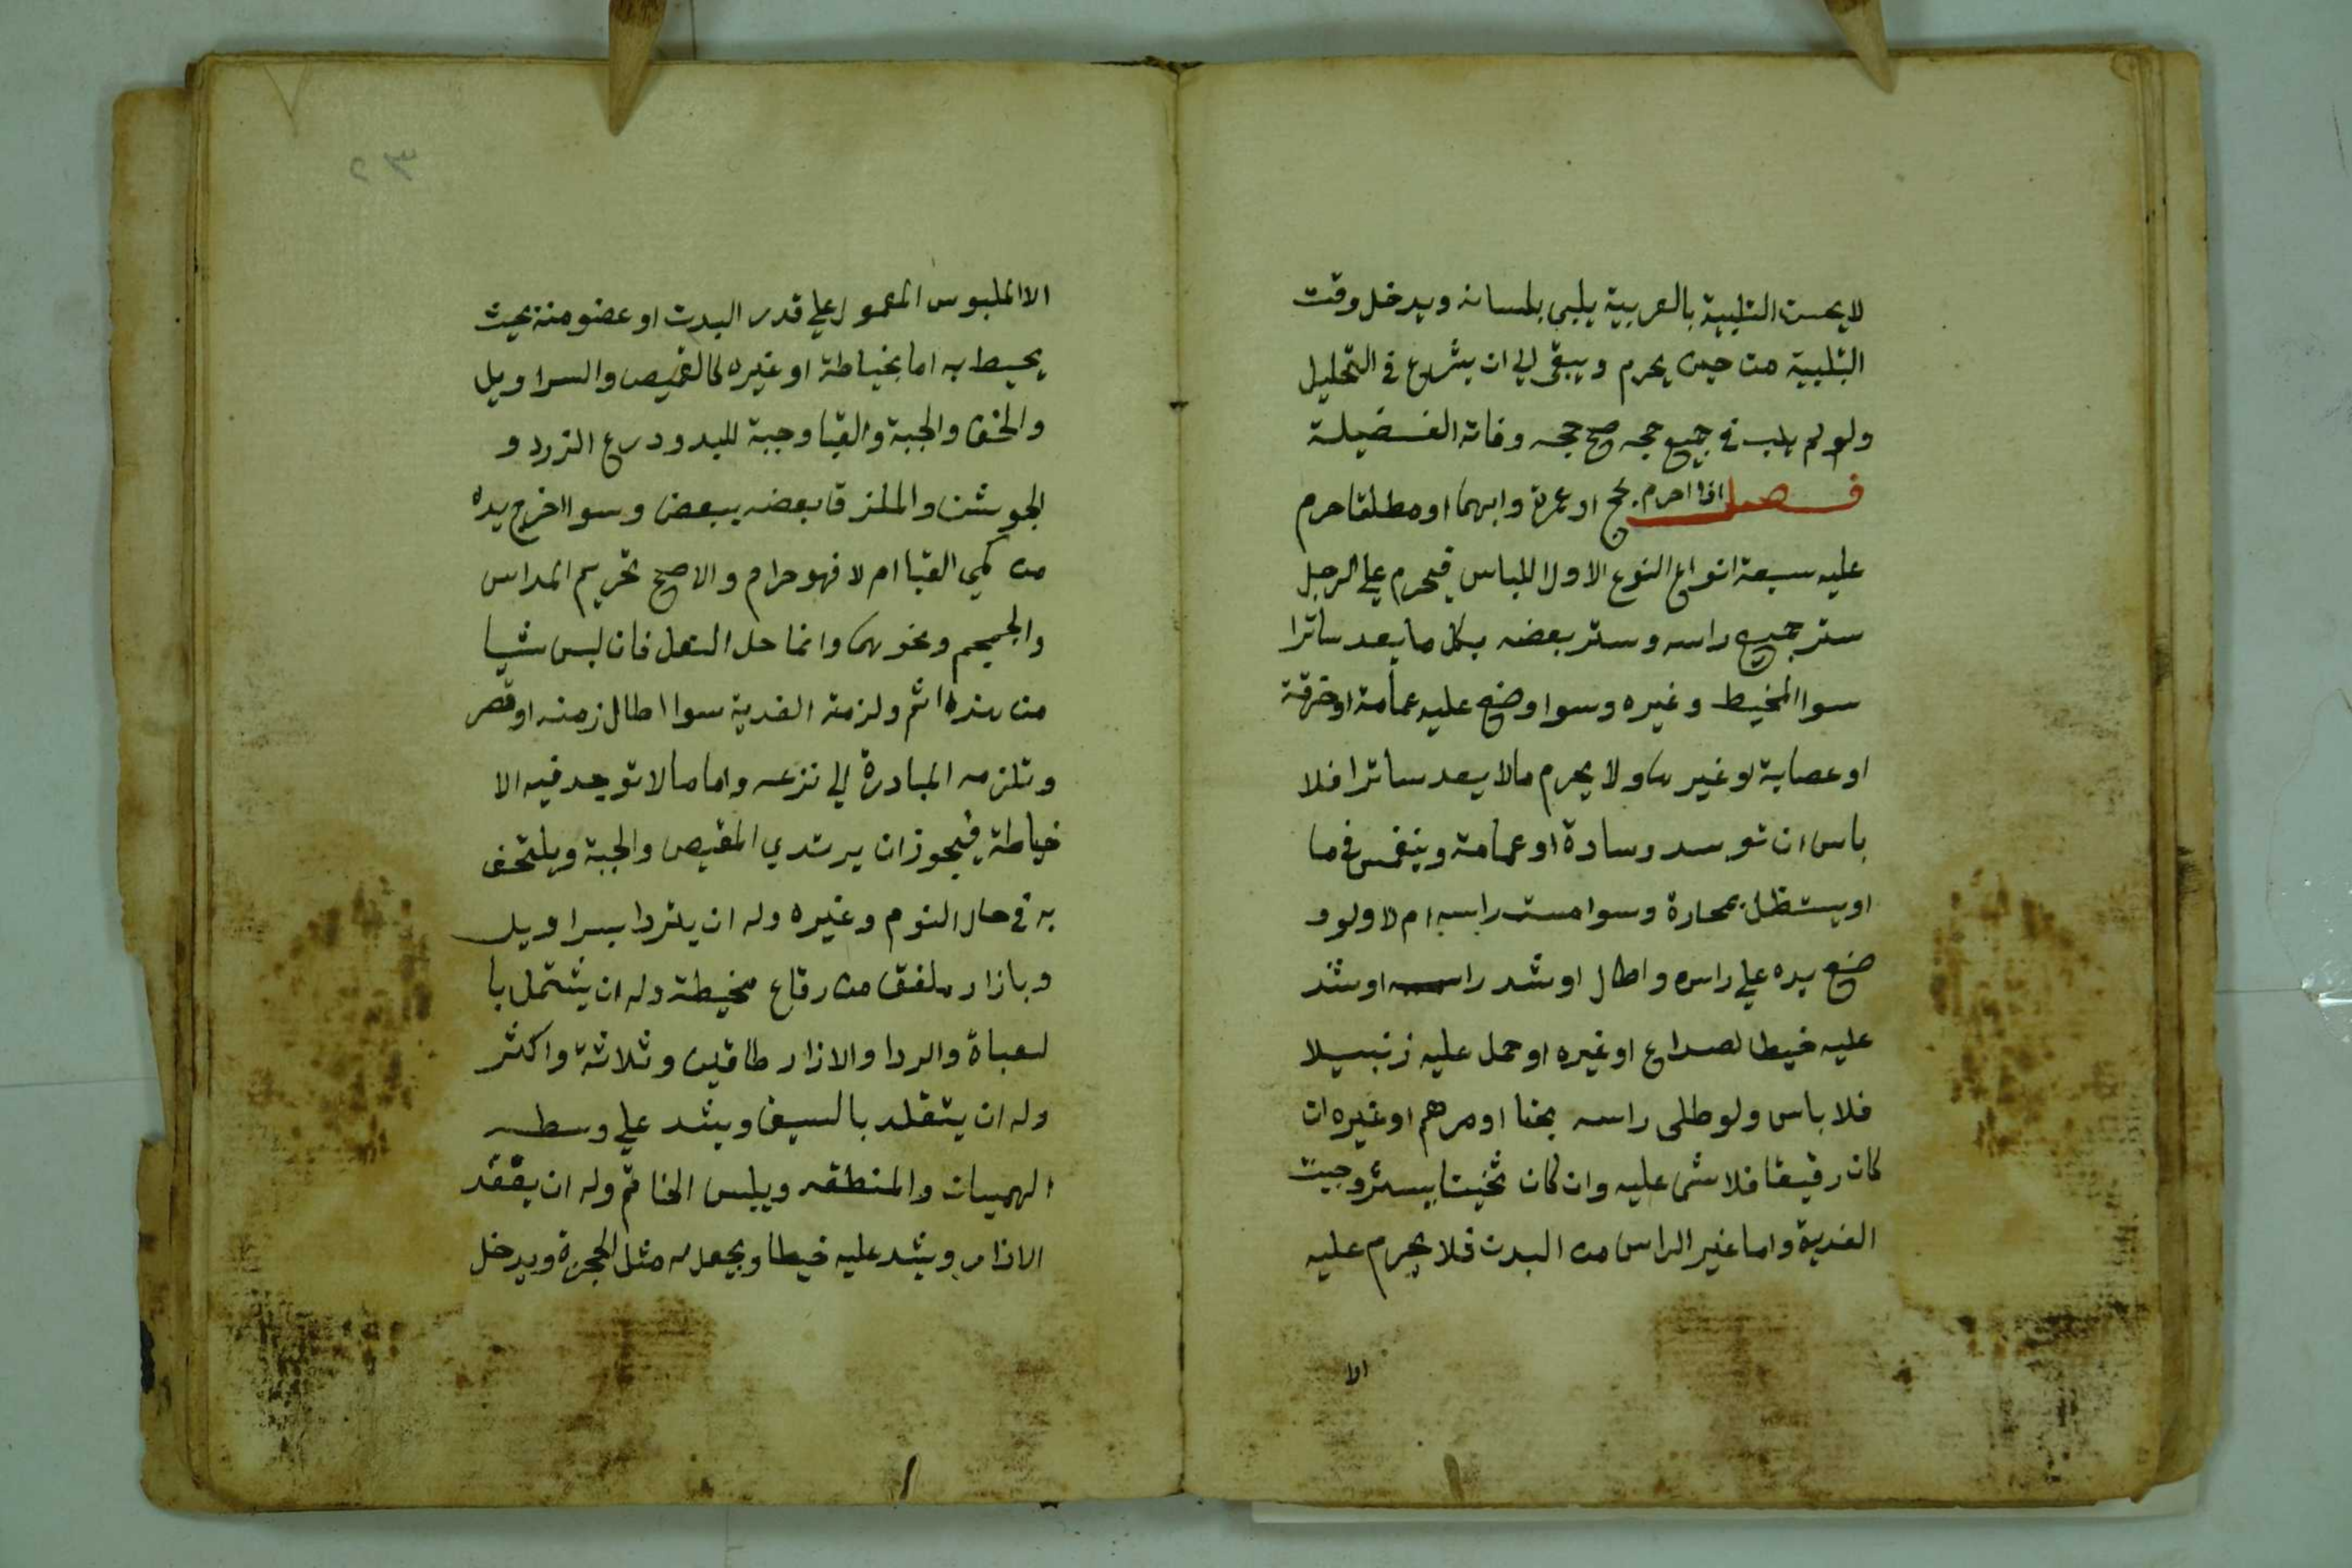 لا يحسن التلبية بالعربية يلبى بلسانه ويدخل وقت
التلبية من حين يحرم ويبقى الي ان يشرع في التحليل
ولو لم يلب في جميع حجه صح حجه وفاته الفضيلة
فصل اذا احرم بحج او عمرة وابهما او مطلقا حرم
عليه سبعة انواع النوع الاول اللباس فيحرم علي الرجل
ستر جميع راسه وستر بعضه بكل ما يعد ساترا
سوا المخيط وغيره وسوا وضع عليه عمامة او خرقة
او عصابة او غيرها ولا يحرم مالا يعد ساترا فلا
باس ان توسد وسادة او عمامة وينغمس في ما
او يستظل بمحارة وسوا مست راسه ام لا ولو و
ضع يده علي راسه واطال او شد راسه او شد
عليه خيطا لصداع او غيره او حمل عليه زنبيلا
فلا باس ولو طلى راسه بحنا او مرهم او غيره ان
كان رقيقا فلا شى عليه وان كان ثخينا يستر وجبت
الفدية واما غير الراس من البدن فلا يحرم عليه
الا
٢٣
الا الملبوس المعمول علي قدر البدن او عضو منه بحيث
يحيط به اما بخياطة او غيره كالقميص والسراويل
والخف والجبة والقبا وجبة للبد ودرع الزرد و
الجوشن والملزق بعضه ببعض وسوا اخرج يده
من كمي القبا ام لا فهو حرام والاصح تحريم المداس
والجمجم ونحوهما وانما حل النعل فان لبس شيا
من هذه اثم ولزمته الفدية سوا اطال زمنه او قصر
وتلزمه المبادرة الي نزعه واما مالا توجد فيه الا
خياطة فيجوز ان يرتدي القميص والجبة ويلتحف
به في حال النوم وغيره وله ان يتردا بسراويل
وبازار ملفق من رقاع مخيطة وله ان يشتمل با
لعباة والردا والازار طاقين وثلاثة واكثر
وله ان يتقلد بالسيف ويشد علي وسطه
الهميان والمنطقه ويلبس الخاتم وله ان يعقد
الازار ويشد عليه خيطا ويجعل له مثل الحجزة ويدخل